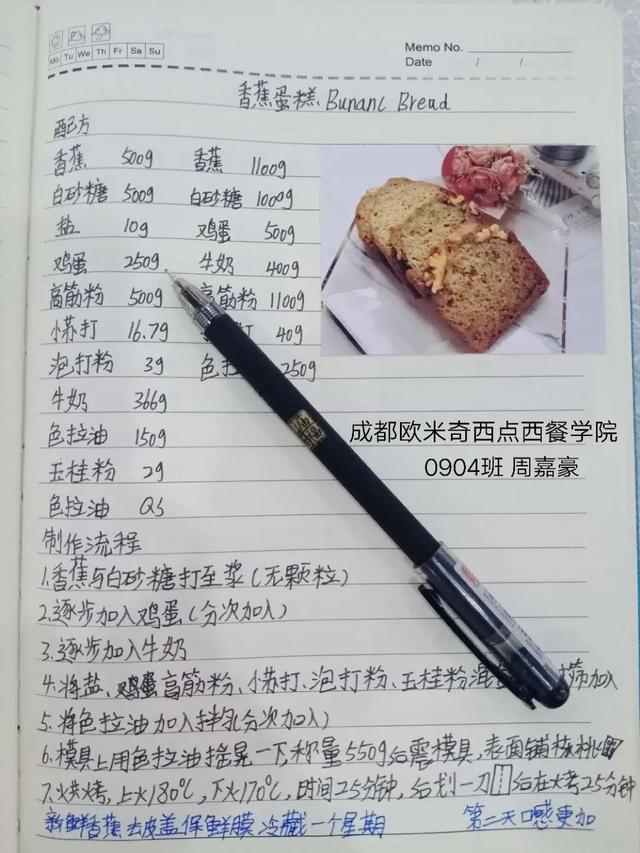 Mo Tu We Th Fr Sa Su
Memo No.
Date / /
香蕉蛋糕 Bunanc Bread
配方
香蕉 500g 香蕉 1100g
白砂糖 500g 白砂糖 1000g
盐 10g 鸡蛋 500g
鸡蛋 250g 牛奶 400g
高筋粉 500g 高筋粉 1100g
小苏打 16.7g 打 40g
泡打粉 3g 色拉 250g
牛奶 366g
色拉油 150g
玉桂粉 2g
色拉油 QS
成都欧米奇西点西餐学院
0904班 周嘉豪
制作流程
1.香蕉与白砂糖打至浆(无颗粒)
2.逐步加入鸡蛋(分次加入)
3.逐步加入牛奶
4.将盐、高筋粉、小苏打、泡打粉、玉桂粉混 筛加入
5.将色拉油加入拌匀(分次加入)
6.模具上用色拉油摇晃一下,称量550g后震模具,表面铺核桃
7.烘烤,上火180℃,下火170℃,时间25分钟,后划一刀 后在烤25分钟
新鲜香蕉去皮盖保鲜膜冷藏一个星期 第二天口感更加